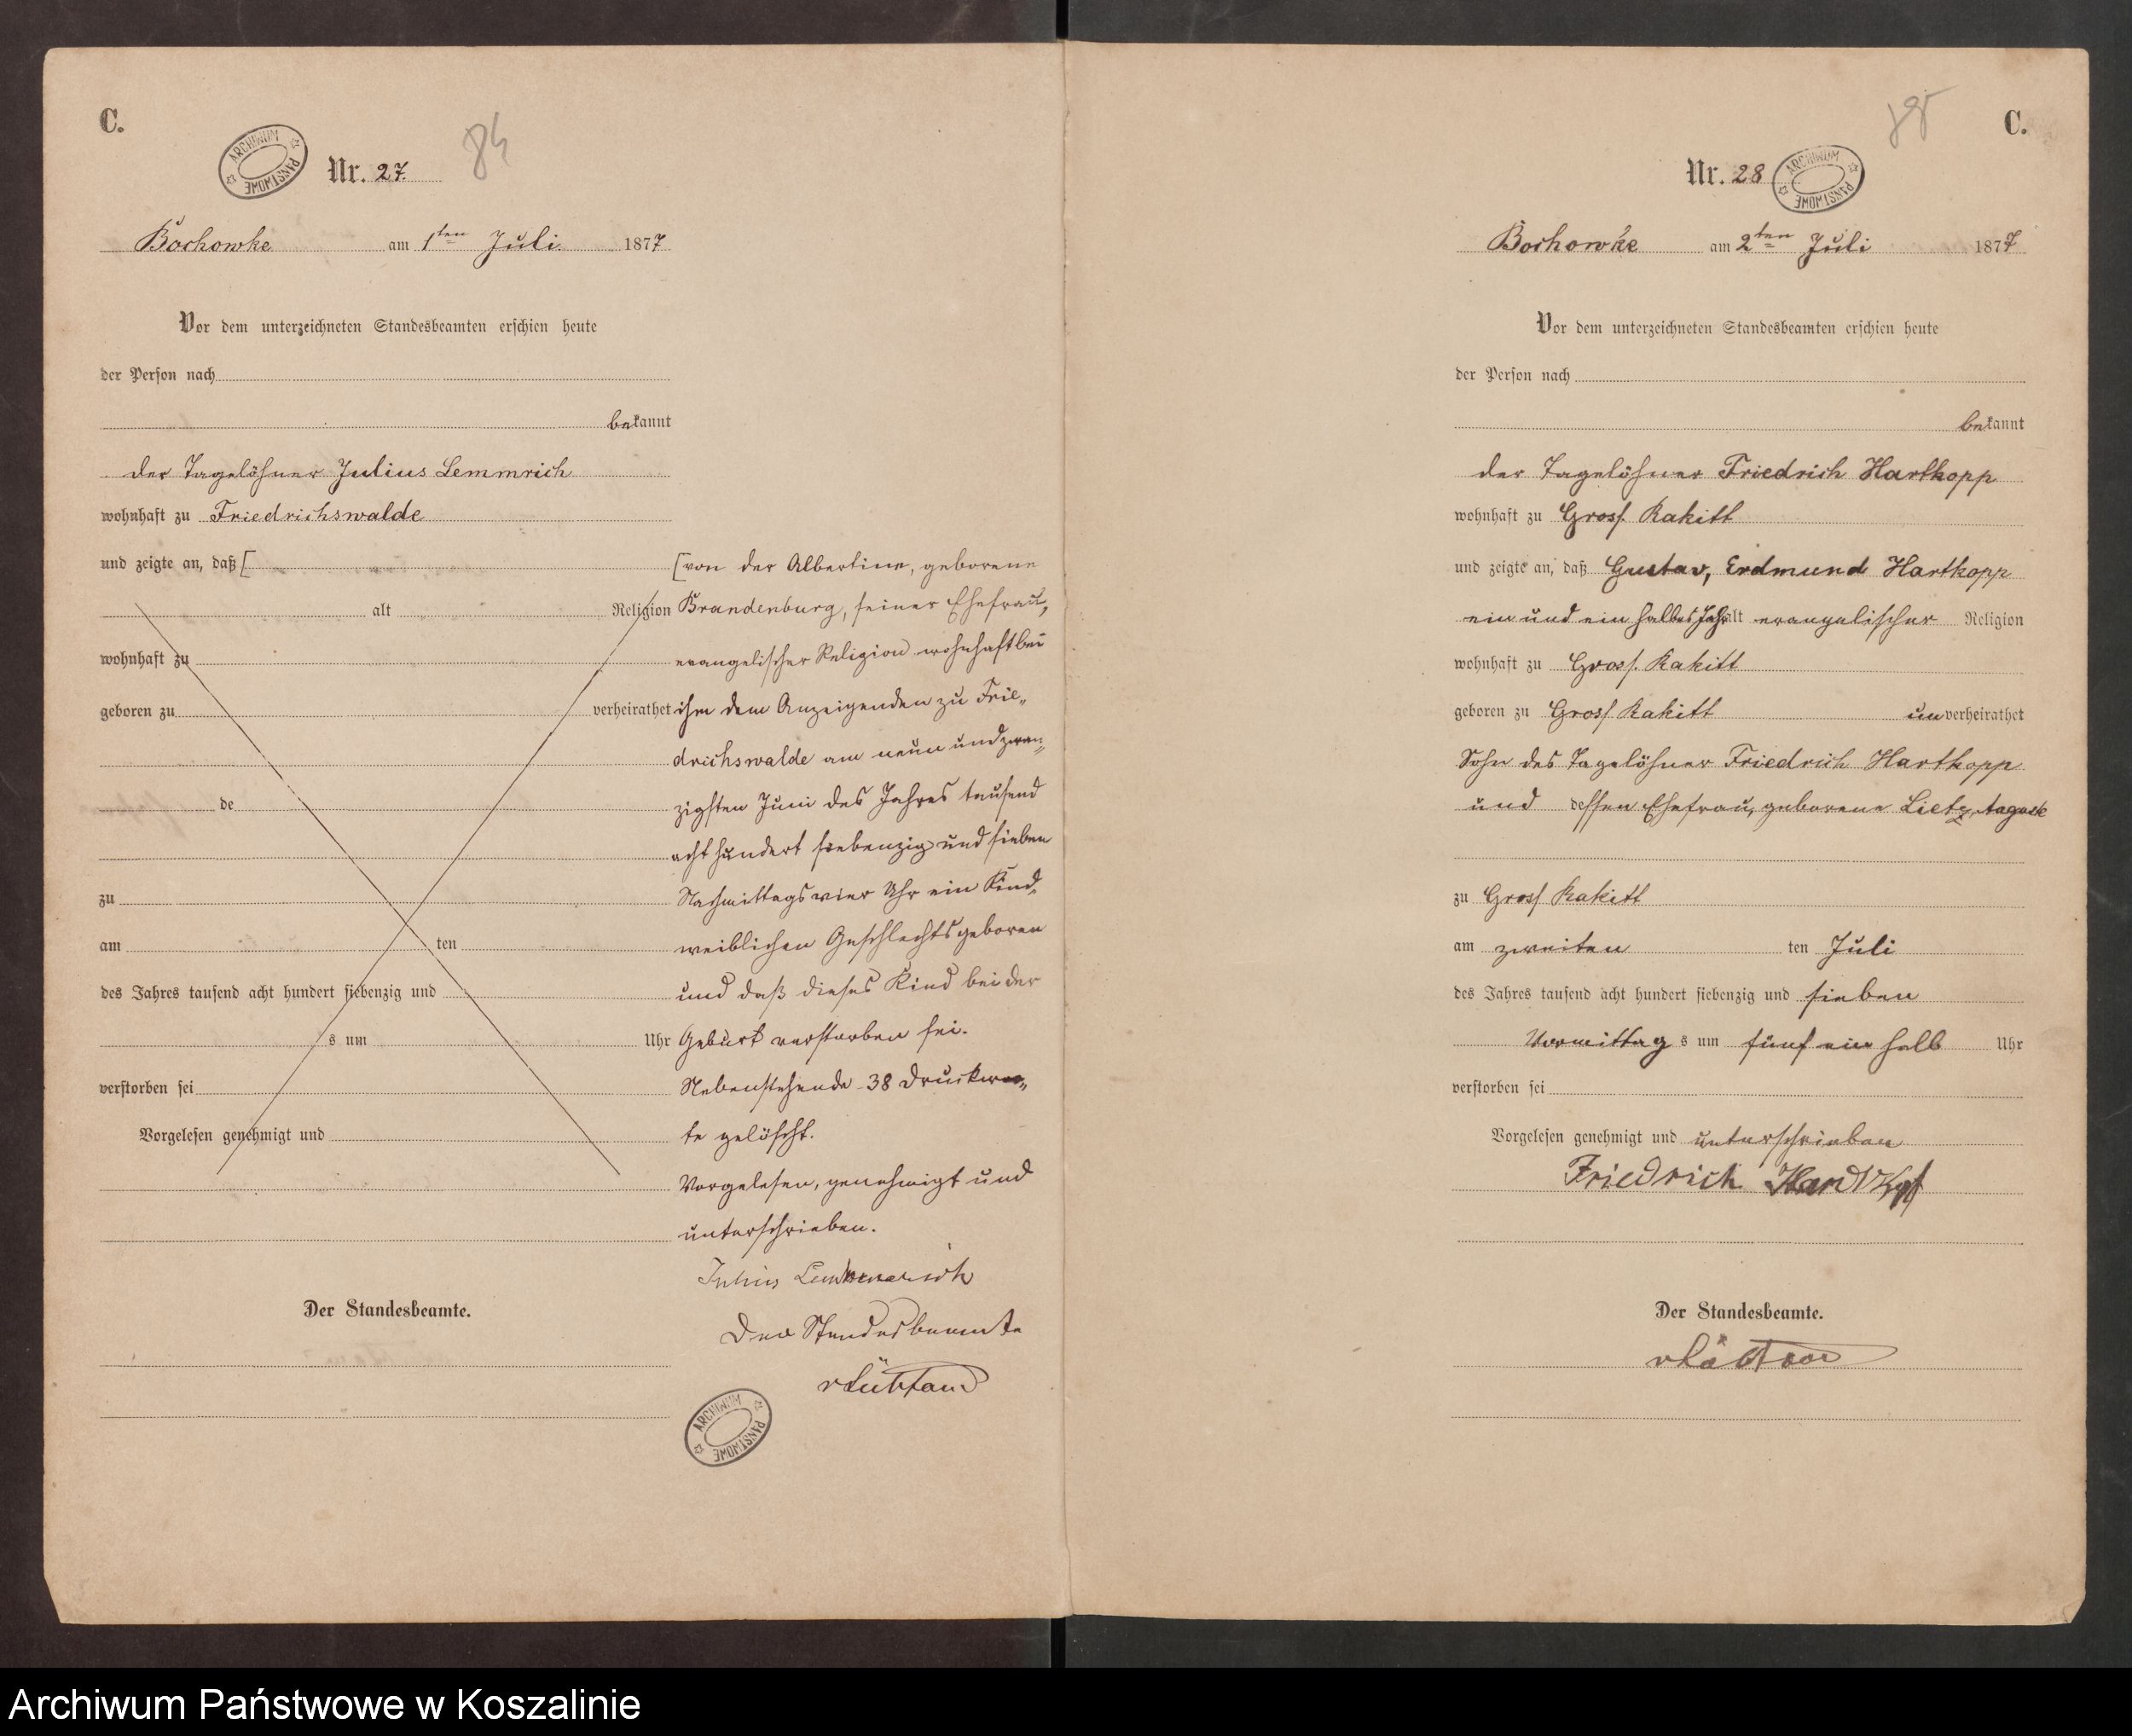 C.
ARCHIWUM PAŃSTWOWE
Nr. 27.
84
Bochowke am 1ten Juli. 1877
Vor dem unterzeichneten Standesbeamten erschien heute
der Person nach
bekannt
der Tagelöhner Julius Lemmrich
wohnhaft zu Friedrichswalde
und zeigte an, daß [
alt Religion
wohnhaft zu
geboren zu verheirathet
de
zu
am ten
des Jahres tausend acht hundert siebenzig und
s um Uhr
verstorben sei
Vorgelesen genehmigt und
Der Standesbeamte.
[von der Albertine, geborene
Brandenburg, seiner Ehefrau,
evangelischer Religion wohnhaft bei
ihm dem Anzeigenden zu Frie„
drichswalde am neun und zwan„
zigsten Juni des Jahres tausend
acht hundert siebenzig und sieben
Nachmittags vier Uhr ein Kind„
weiblichen Geschlechts geboren
und daß dieses Kind bei der
Geburt verstorben sei.
Nebenstehende 38 Druckwor„
te gelöscht.
Vorgelesen, genehmigt und
unterschrieben.
Julius Lemmerich
Der Standesbeamte
ARCHIWUM PAŃSTWOWE
C.
85
Nr. 28
ARCHIWUM PAŃSTWOWE
Bochowke am 2ten Juli 1877
Vor dem unterzeichneten Standesbeamten erschien heute
der Person nach
bekannt
der Tagelöhner Friedrich Hartkopp
wohnhaft zu Gross Rakitt
und zeigte an, daß Gustav, Erdmund Hartkopp
ein und ein halbes Jahr alt evangelischer Religion
wohnhaft zu Gross Rakitt
geboren zu Gross Rakitt unverheirathet
Sohn des Tagelöhner Friedrich Hartkopp
und dessen Ehefrau, geborene Lietz
zu Gross Rakitt
am zweiten ten Juli
des Jahres tausend acht hundert siebenzig und sieben
Vormittag s um fünf ein halb Uhr
verstorben sei
Vorgelesen genehmigt und unterschrieben
Friedrich
Der Standesbeamte.
Archiwum Państwowe w Koszalinie